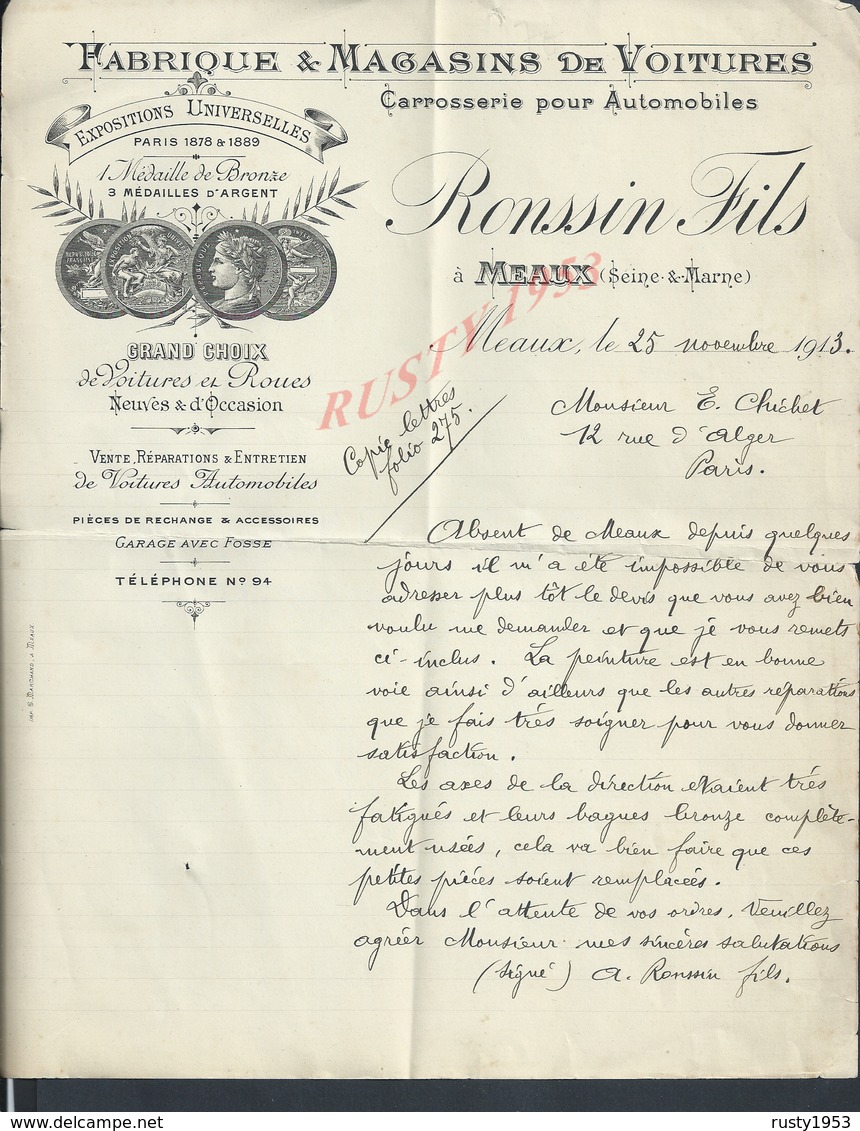 FABRIQUE & MAGASINS DE VOITURES
Carrosserie pour Automobiles
EXPOSITIONS UNIVERSELLES
PARIS 1878 & 1889
1 Médaille de Bronze
3 MÉDAILLES D'ARGENT
Ronssin Fils
à MEAUX (Seine-&-Marne)
GRAND CHOIX
de Voitures et Roues
Neuves & d'Occasion
VENTE, RÉPARATIONS & ENTRETIEN
de Voitures Automobiles
PIÈCES DE RECHANGE & ACCESSOIRES
GARAGE AVEC FOSSE
TÉLÉPHONE Nº 94
IMP. G. MARCHAND, A MEAUX
RUSTY1953
Meaux, le 25 novembre 1913.
Copie lettres
folio 275.
Monsieur E. Chichet
12 rue d'Alger
Paris.
Absent de Meaux depuis quelques
jours il m'a été impossible de vous
adresser plus tôt le devis que vous avez bien
voulu me demander et que je vous remets
ci-inclus. La peinture est en bonne
voie ainsi d'ailleurs que les autres réparations
que je fais très soigner pour vous donner
satisfaction.
Les axes de la direction étaient très
fatigués et leurs bagues bronze complète-
ment usées, cela va bien faire que ces
petites pièces soient remplacées.
Dans l'attente de vos ordres, Veuillez
agréer Monsieur mes sincères salutations
(signé) A. Ronssin fils.
www.delcampe.net
rusty1953